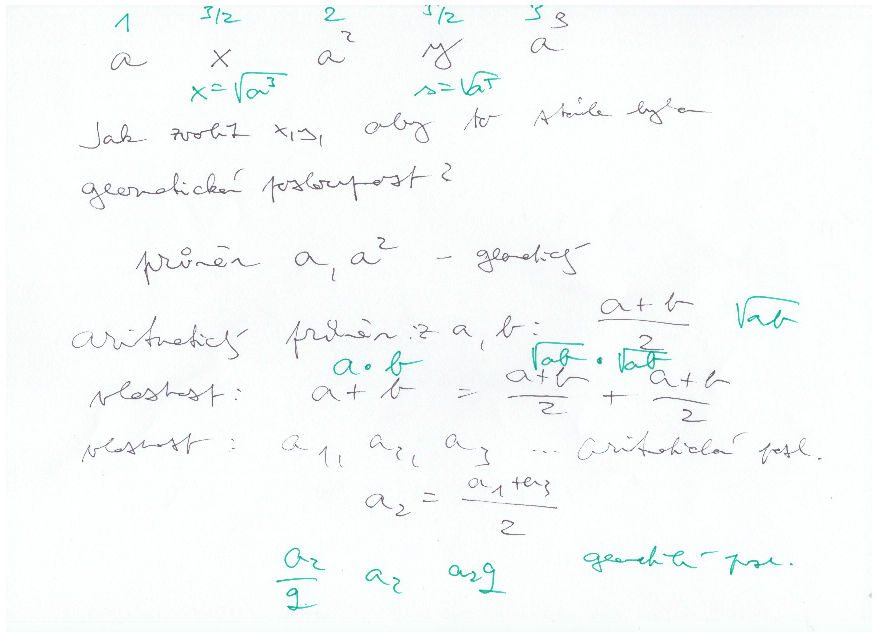 1 3/2 2 5/2 3
a x a² y a³
x=√a³ s=√a⁵
Jak zvolit x, y, aby to stále byla
geometrická posloupnost?
průměr a, a² - geometrický
aritmetický průměr z a, b: (a+b)/2 √ab
a·b √ab · √ab
vlastnost: a+b = (a+b)/2 + (a+b)/2
vlastnost: a₁, a₂, a₃ ... aritmetická posl.
a₂ = (a₁+a₃)/2
a₂/q a₂ a₂q geometrická posl.